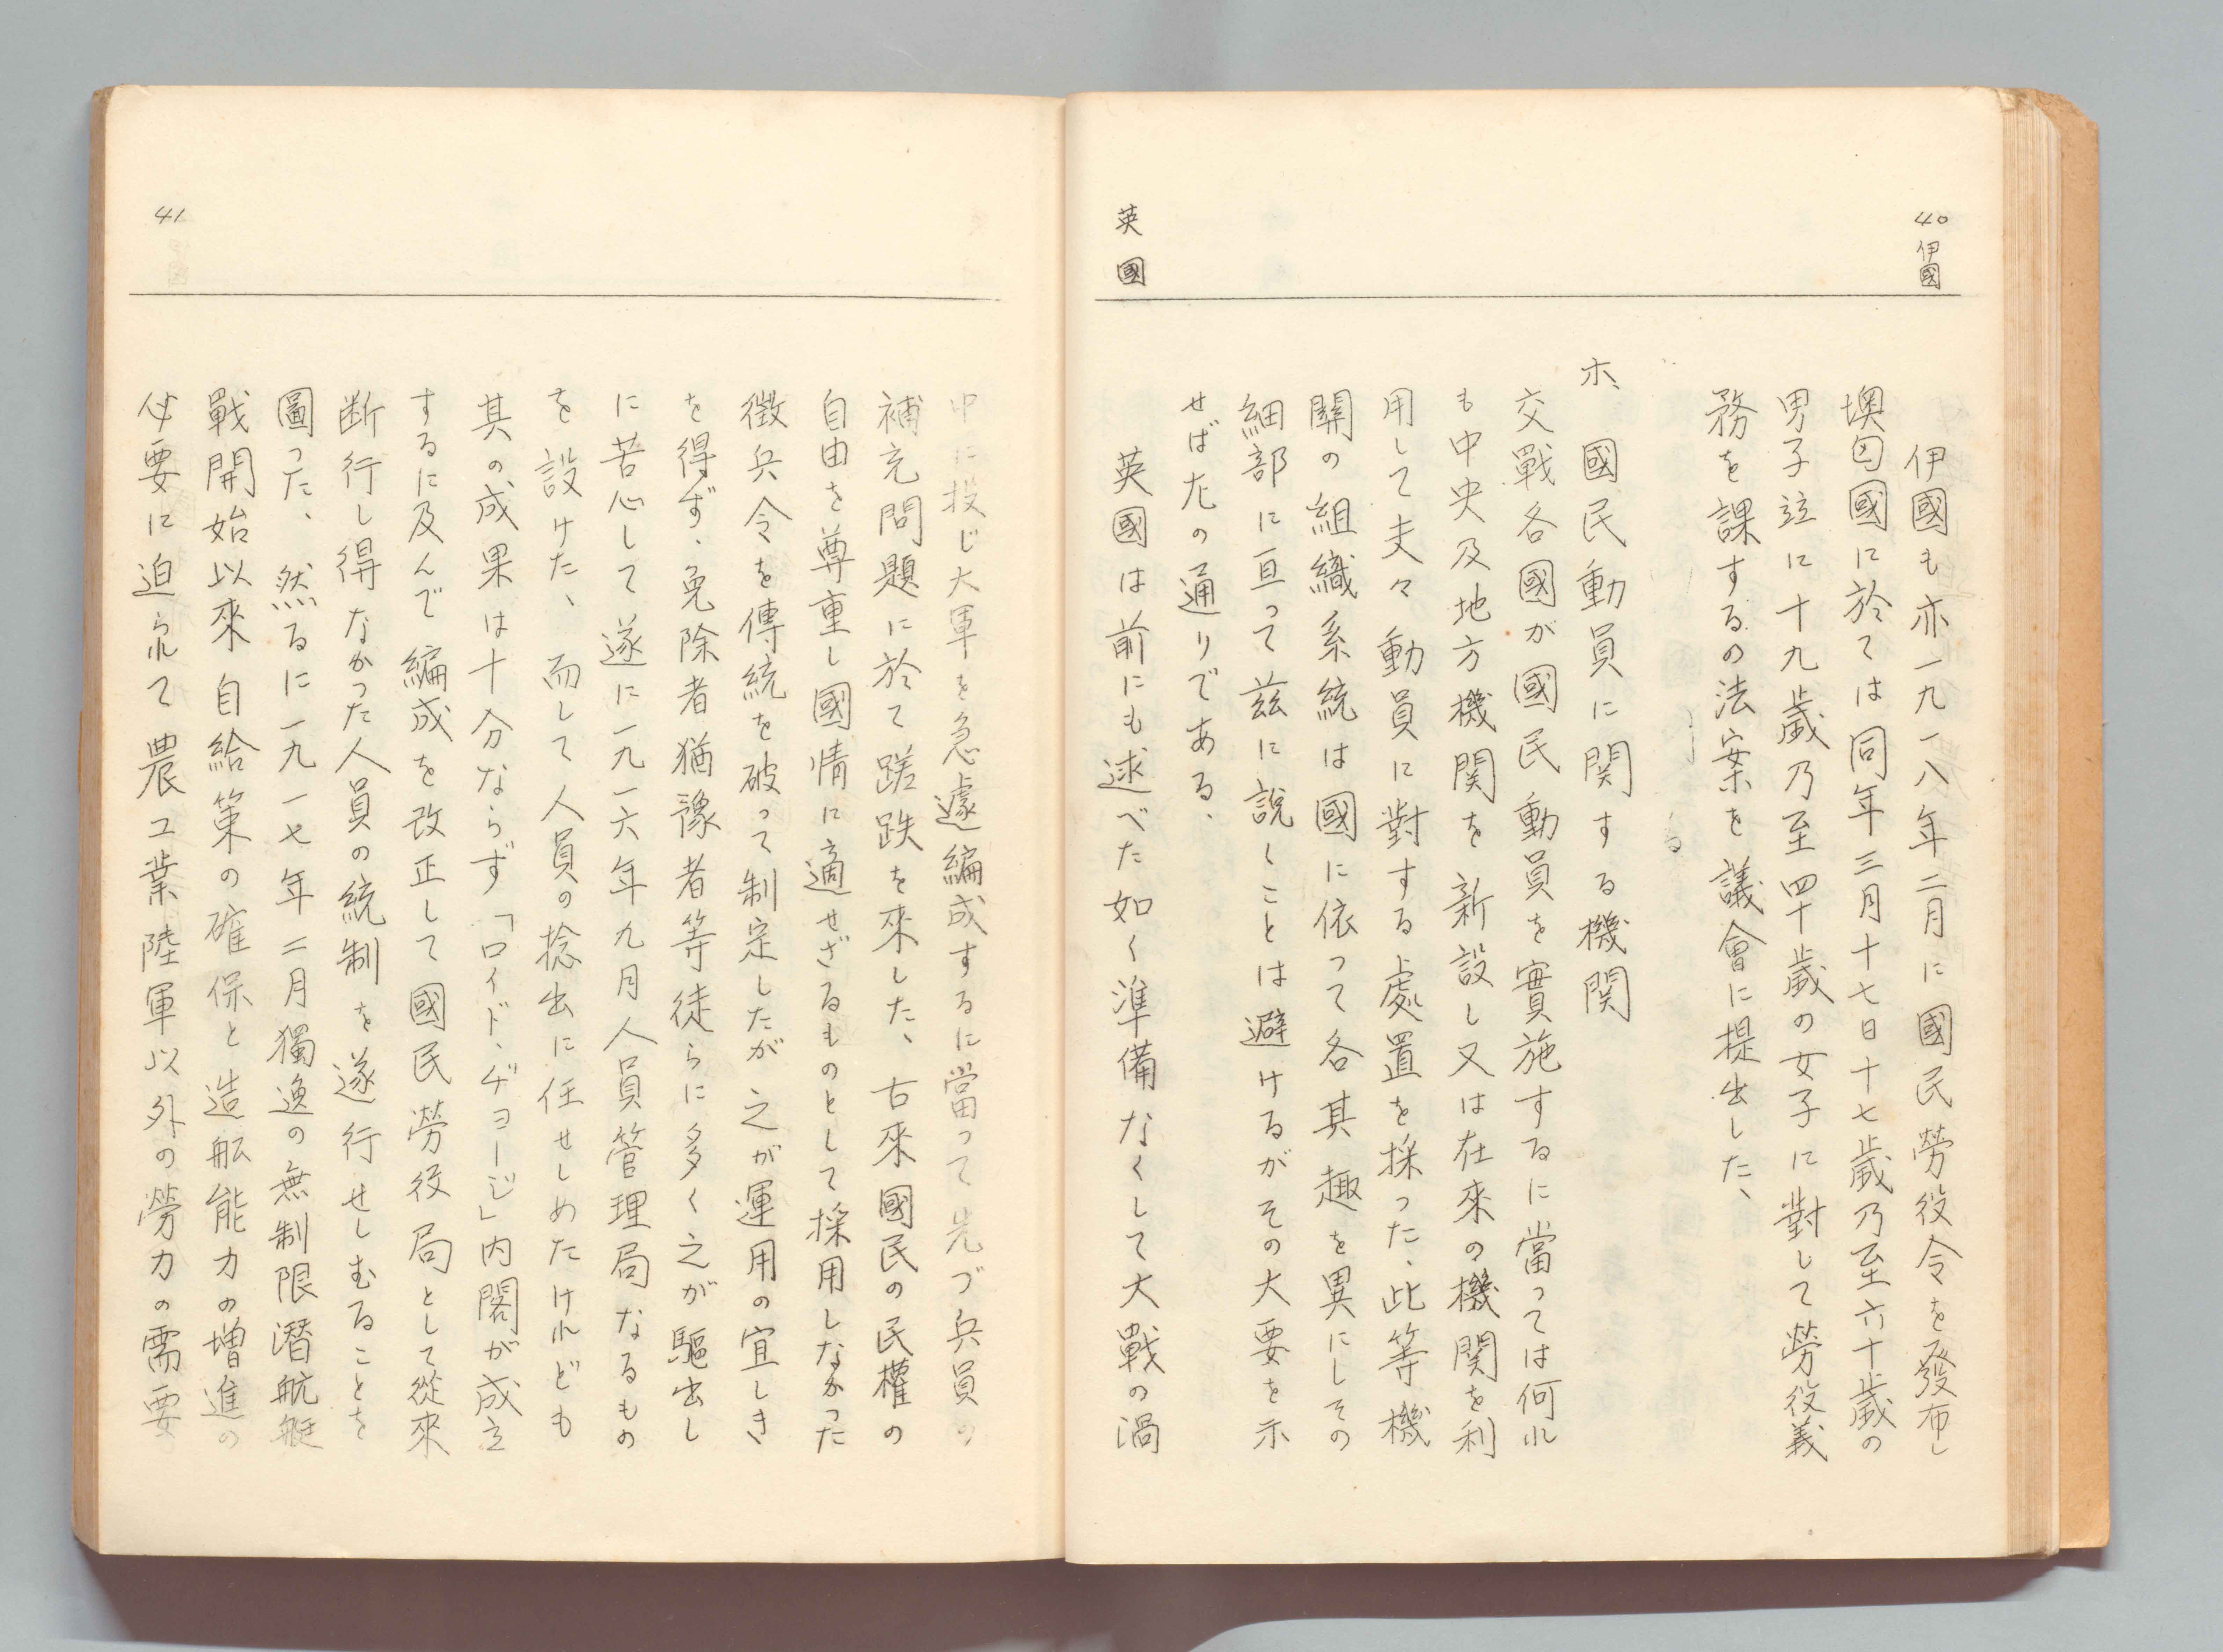 40
伊國
伊國も亦一九一八年二月に國民勞役令を發布し
墺匈國に於ては同年三月十七日十七歲乃至六十歲の
男子竝に十九歲乃至四十歲の女子に對して勞役義
務を課するの法案を議會に提出した、
ホ、國民動員に関する機関
交戰各國が國民動員を實施するに當っては何れ
も中央及地方機関を新設し又は在來の機関を利
用して夫々動員に對する處置を採った、此等機
關の組織系統は國に依って各其趣を異にしその
細部に亘って茲に說くことは避けるがその大要を示
せば左の通りである、
英國
英國は前にも逑べた如く準備なくして大戰の渦
41
中に投じ大軍を急遽編成するに當って先づ兵員の
補充問題に於て蹉跌を來した、古來國民の民權の
自由を尊重し國情に適せざるものとして採用しなかった
徴兵令を傳統を破って制定したが之が運用の宜しき
を得ず、免除者猶豫者等徒らに多く之が驅出し
に苦心して遂に一九一六年九月人員管理局なるもの
を設けた、而して人員の捻出に任せしめたけれども
其の成果は十分ならず「ロイド、ヂヨージ」内閣が成立
するに及んで編成を改正して國民勞役局として從來
断行し得なかった人員の統制を遂行せしむることを
圖った、然るに一九一七年二月獨逸の無制限潛航艇
戰開始以來自給策の確保と造船能力の増進の
必要に迫られて農工業陸軍以外の勞力の需要